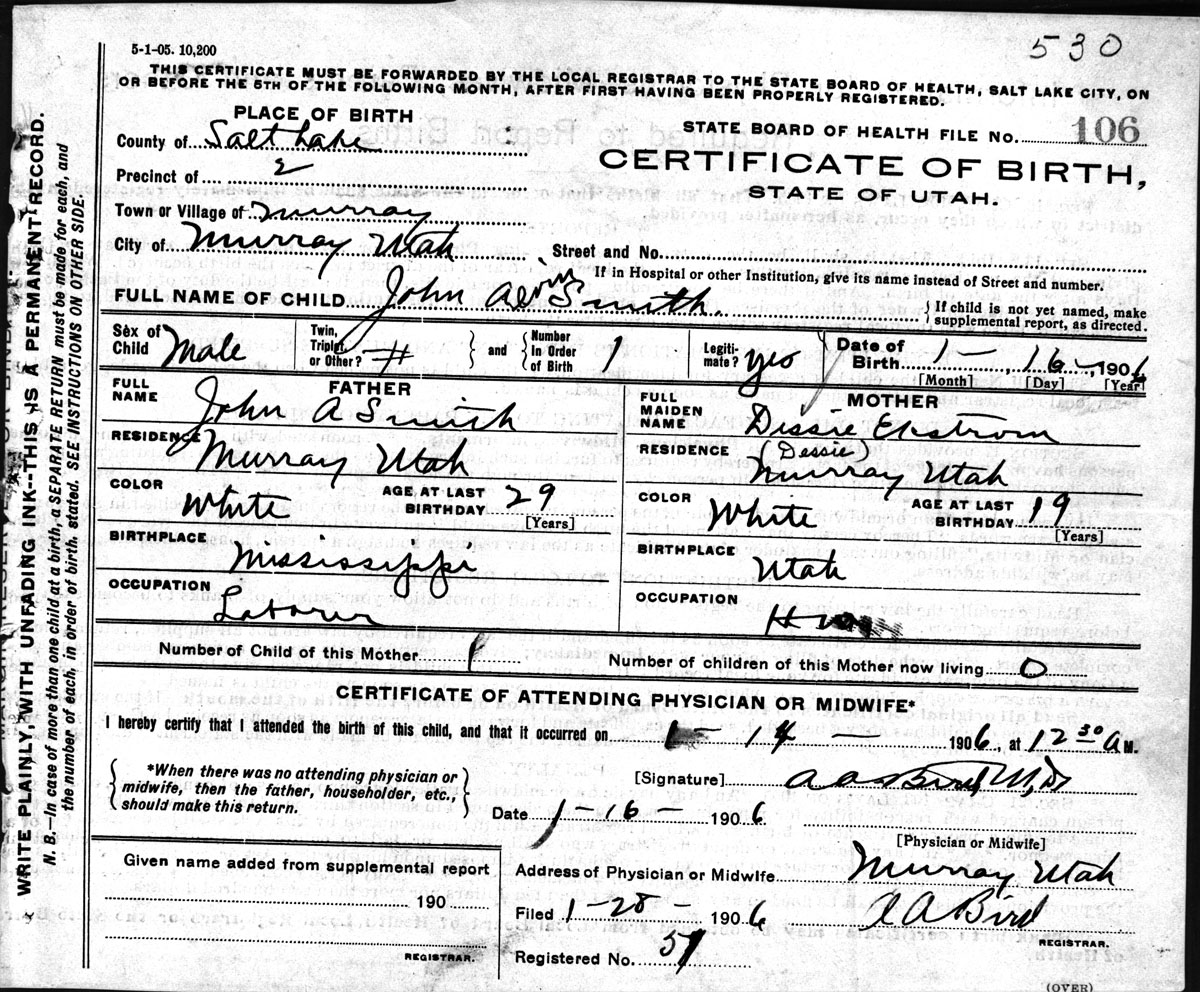 530
5-1-05. 10,200
THIS CERTIFICATE MUST BE FORWARDED BY THE LOCAL REGISTRAR TO THE STATE BOARD OF HEALTH, SALT LAKE CITY, ON
OR BEFORE THE 5TH OF THE FOLLOWING MONTH, AFTER FIRST HAVING BEEN PROPERLY REGISTERED.
PLACE OF BIRTH
County of Salt Lake
Precinct of 2
Town or Village of Murray
City of Murray Utah
STATE BOARD OF HEALTH FILE No. 106
CERTIFICATE OF BIRTH,
STATE OF UTAH.
Street and No.
If in Hospital or other Institution, give its name instead of Street and number.
FULL NAME OF CHILD John Smith.
{If child is not yet named, make
supplemental report, as directed.
Sex of Child Male
Twin, Triplet or Other?
and
Number In Order of Birth 1
Legiti-mate? yes
Date of Birth 1 - 16 - 1906
[Month] [Day] [Year]
FATHER
FULL NAME John A Smith
RESIDENCE Murray Utah
COLOR White
AGE AT LAST BIRTHDAY 29
[Years]
BIRTHPLACE Mississippi
OCCUPATION Laborer
MOTHER
FULL MAIDEN NAME Dessie Ekstrom
(Dessie)
RESIDENCE Murray Utah
COLOR White
AGE AT LAST BIRTHDAY 19
[Years]
BIRTHPLACE Utah
OCCUPATION
Number of Child of this Mother 1
Number of children of this Mother now living 0
CERTIFICATE OF ATTENDING PHYSICIAN OR MIDWIFE*
I hereby certify that I attended the birth of this child, and that it occurred on 1 - 14 - 1906, at 12 30 A M.
{*When there was no attending physician or
midwife, then the father, householder, etc.,
should make this return.}
[Signature] A A Bird M.D.
Date 1-16- 1906
[Physician or Midwife]
Given name added from supplemental report
190
REGISTRAR.
Address of Physician or Midwife Murray Utah
Filed 1-28 1906 A A Bird
REGISTRAR.
Registered No. 51
(OVER)
WRITE PLAINLY, WITH UNFADING INK--THIS IS A PERMANENT RECORD.
N. B.—In case of more than one child at a birth, a SEPARATE RETURN must be made for each, and
the number of each, in order of birth, stated. SEE INSTRUCTIONS ON OTHER SIDE.